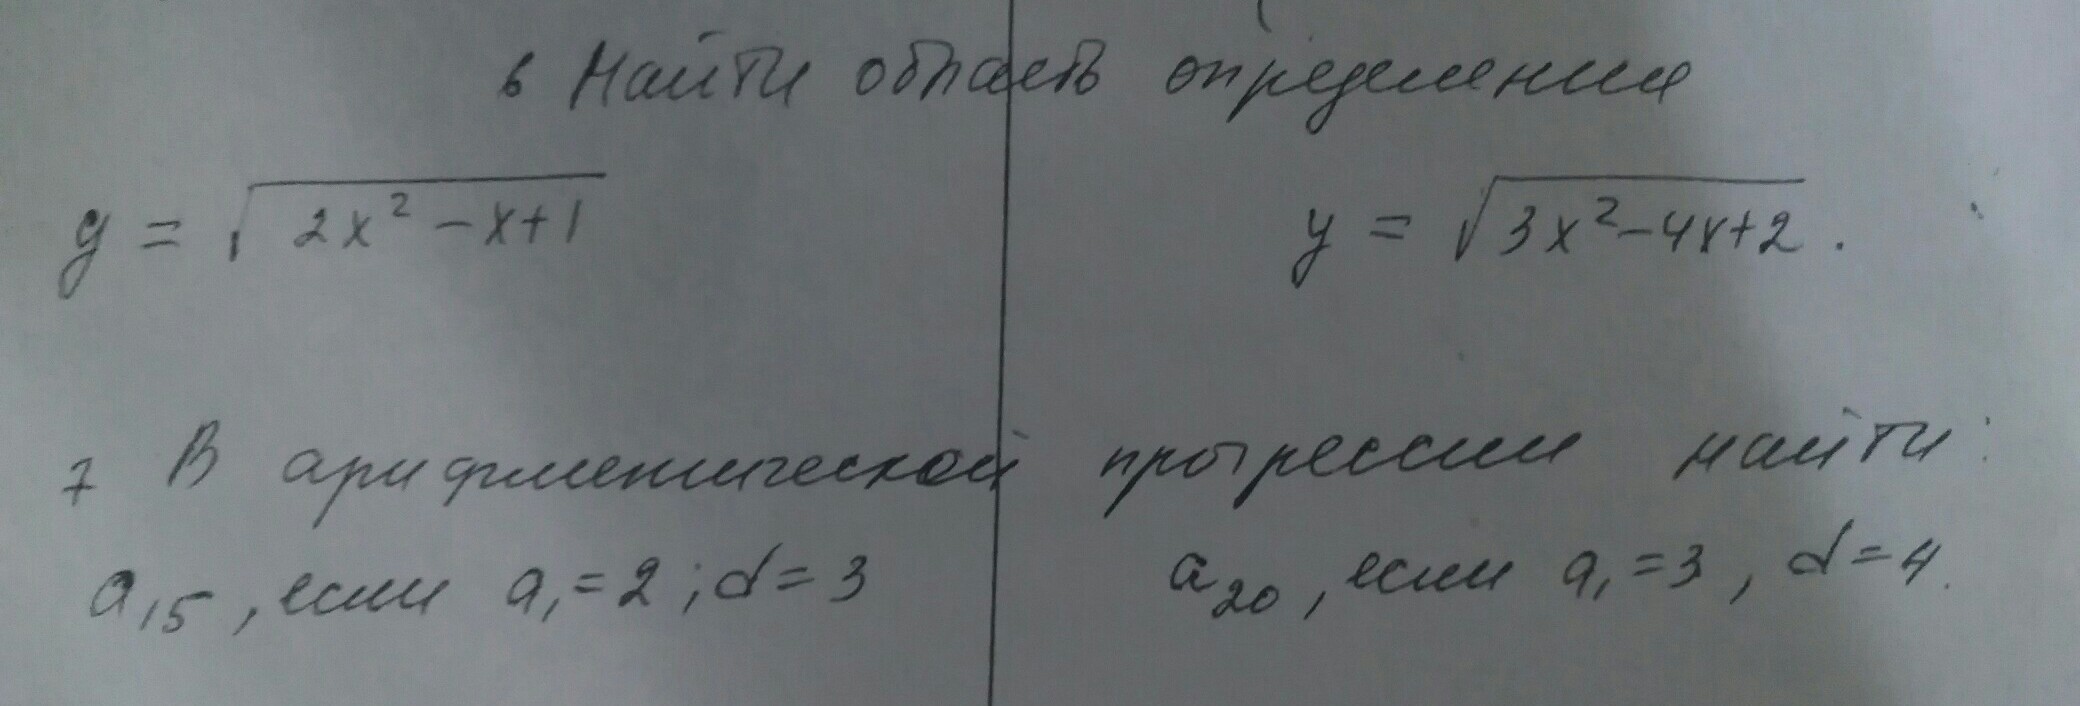 6 Найти область определения
y = √2x² - x + 1 y = √3x² - 4x + 2 .
7 В арифметической прогрессии найти:
a₁₅, если a₁ = 2 ; d = 3 a₂₀, если a₁ = 3, d = 4.